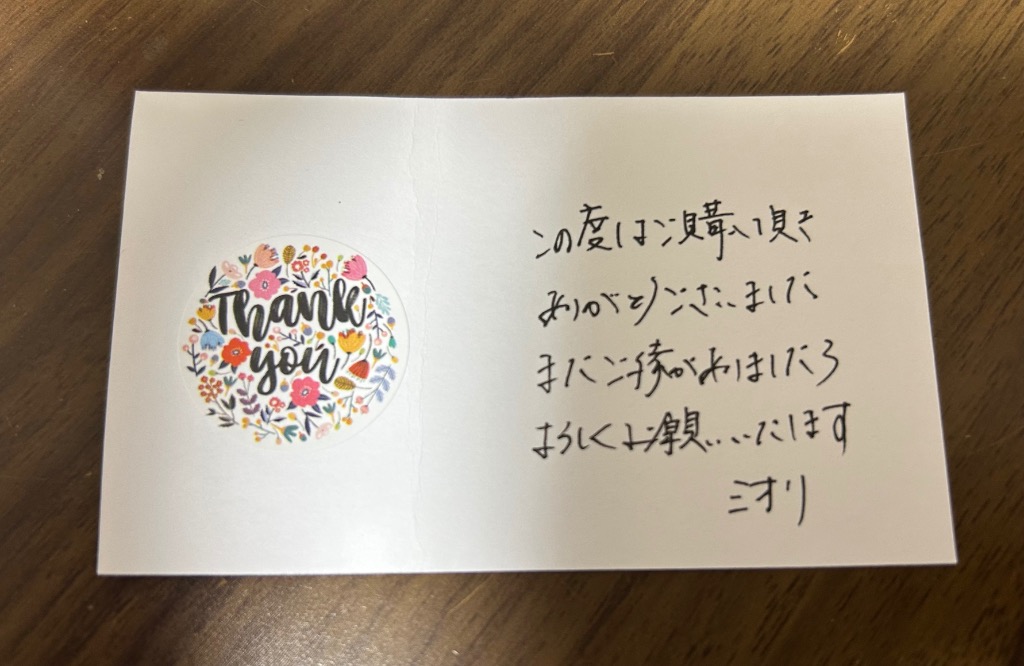 Thank
you
この度はご購入頂き
ありがとうございました
またご縁がありましたら
よろしくお願いいたします
ミオリ